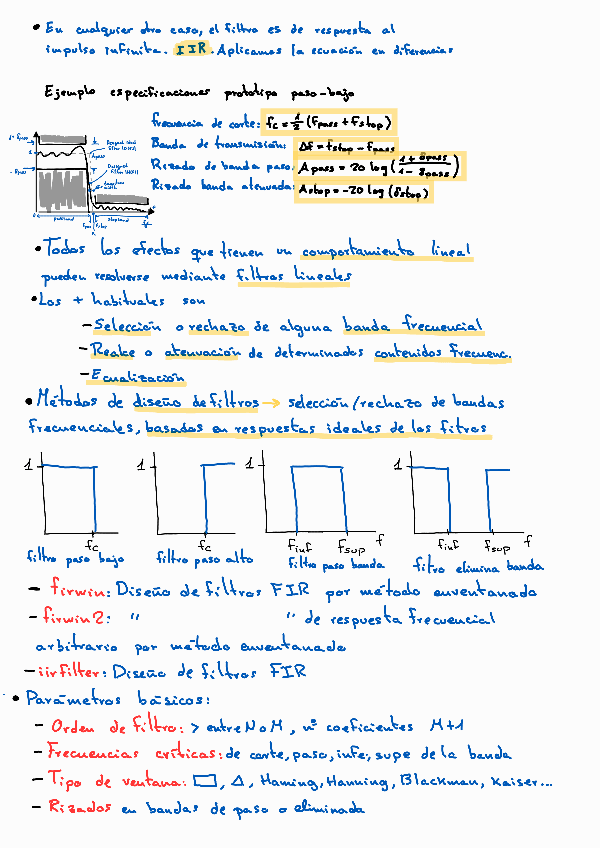 • En cualquier otro caso, el filtro es de respuesta al
impulso infinita. IIR. Aplicamos la ecuación en diferencias
Ejemplo especificaciones prototipo paso-bajo
frecuencia de corte: fc = 1/2 (Fpass + Fstop)
Banda de transmisión: Δf = fstop - fpass
Rizado de banda paso: Apass = 20 log (1 + δpass / 1 - δpass)
Rizado banda atenuada: Astop = -20 log (δstop)
• Todos los efectos que tienen un comportamiento lineal
pueden resolverse mediante filtros lineales
• Los + habituales son
- Selección o rechazo de alguna banda frecuencial
- Realce o atenuación de determinados contenidos frecuenc.
- Ecualización
• Métodos de diseño de filtros → selección/rechazo de bandas
frecuenciales, basados en respuestas ideales de los fitros
1 1 1 1
fc fc finf fsup f finf fsup f
filtro paso bajo filtro paso alto filtro paso banda fitro elimina banda
- firwin: Diseño de filtros FIR por método enventanado
- firwin2: " " de respuesta frecuencial
arbitrario por método enventanado
- iirfilter: Diseño de filtros FIR
• Parámetros básicos:
- Orden de filtro: > entre N o M, nº coeficientes M+1
- Frecuencias críticas: de corte, paso, infe, supe de la banda
- Tipo de ventana: ▭, Δ, Haming, Hanning, Blackman, Kaiser...
- Rizados en bandas de paso o eliminada